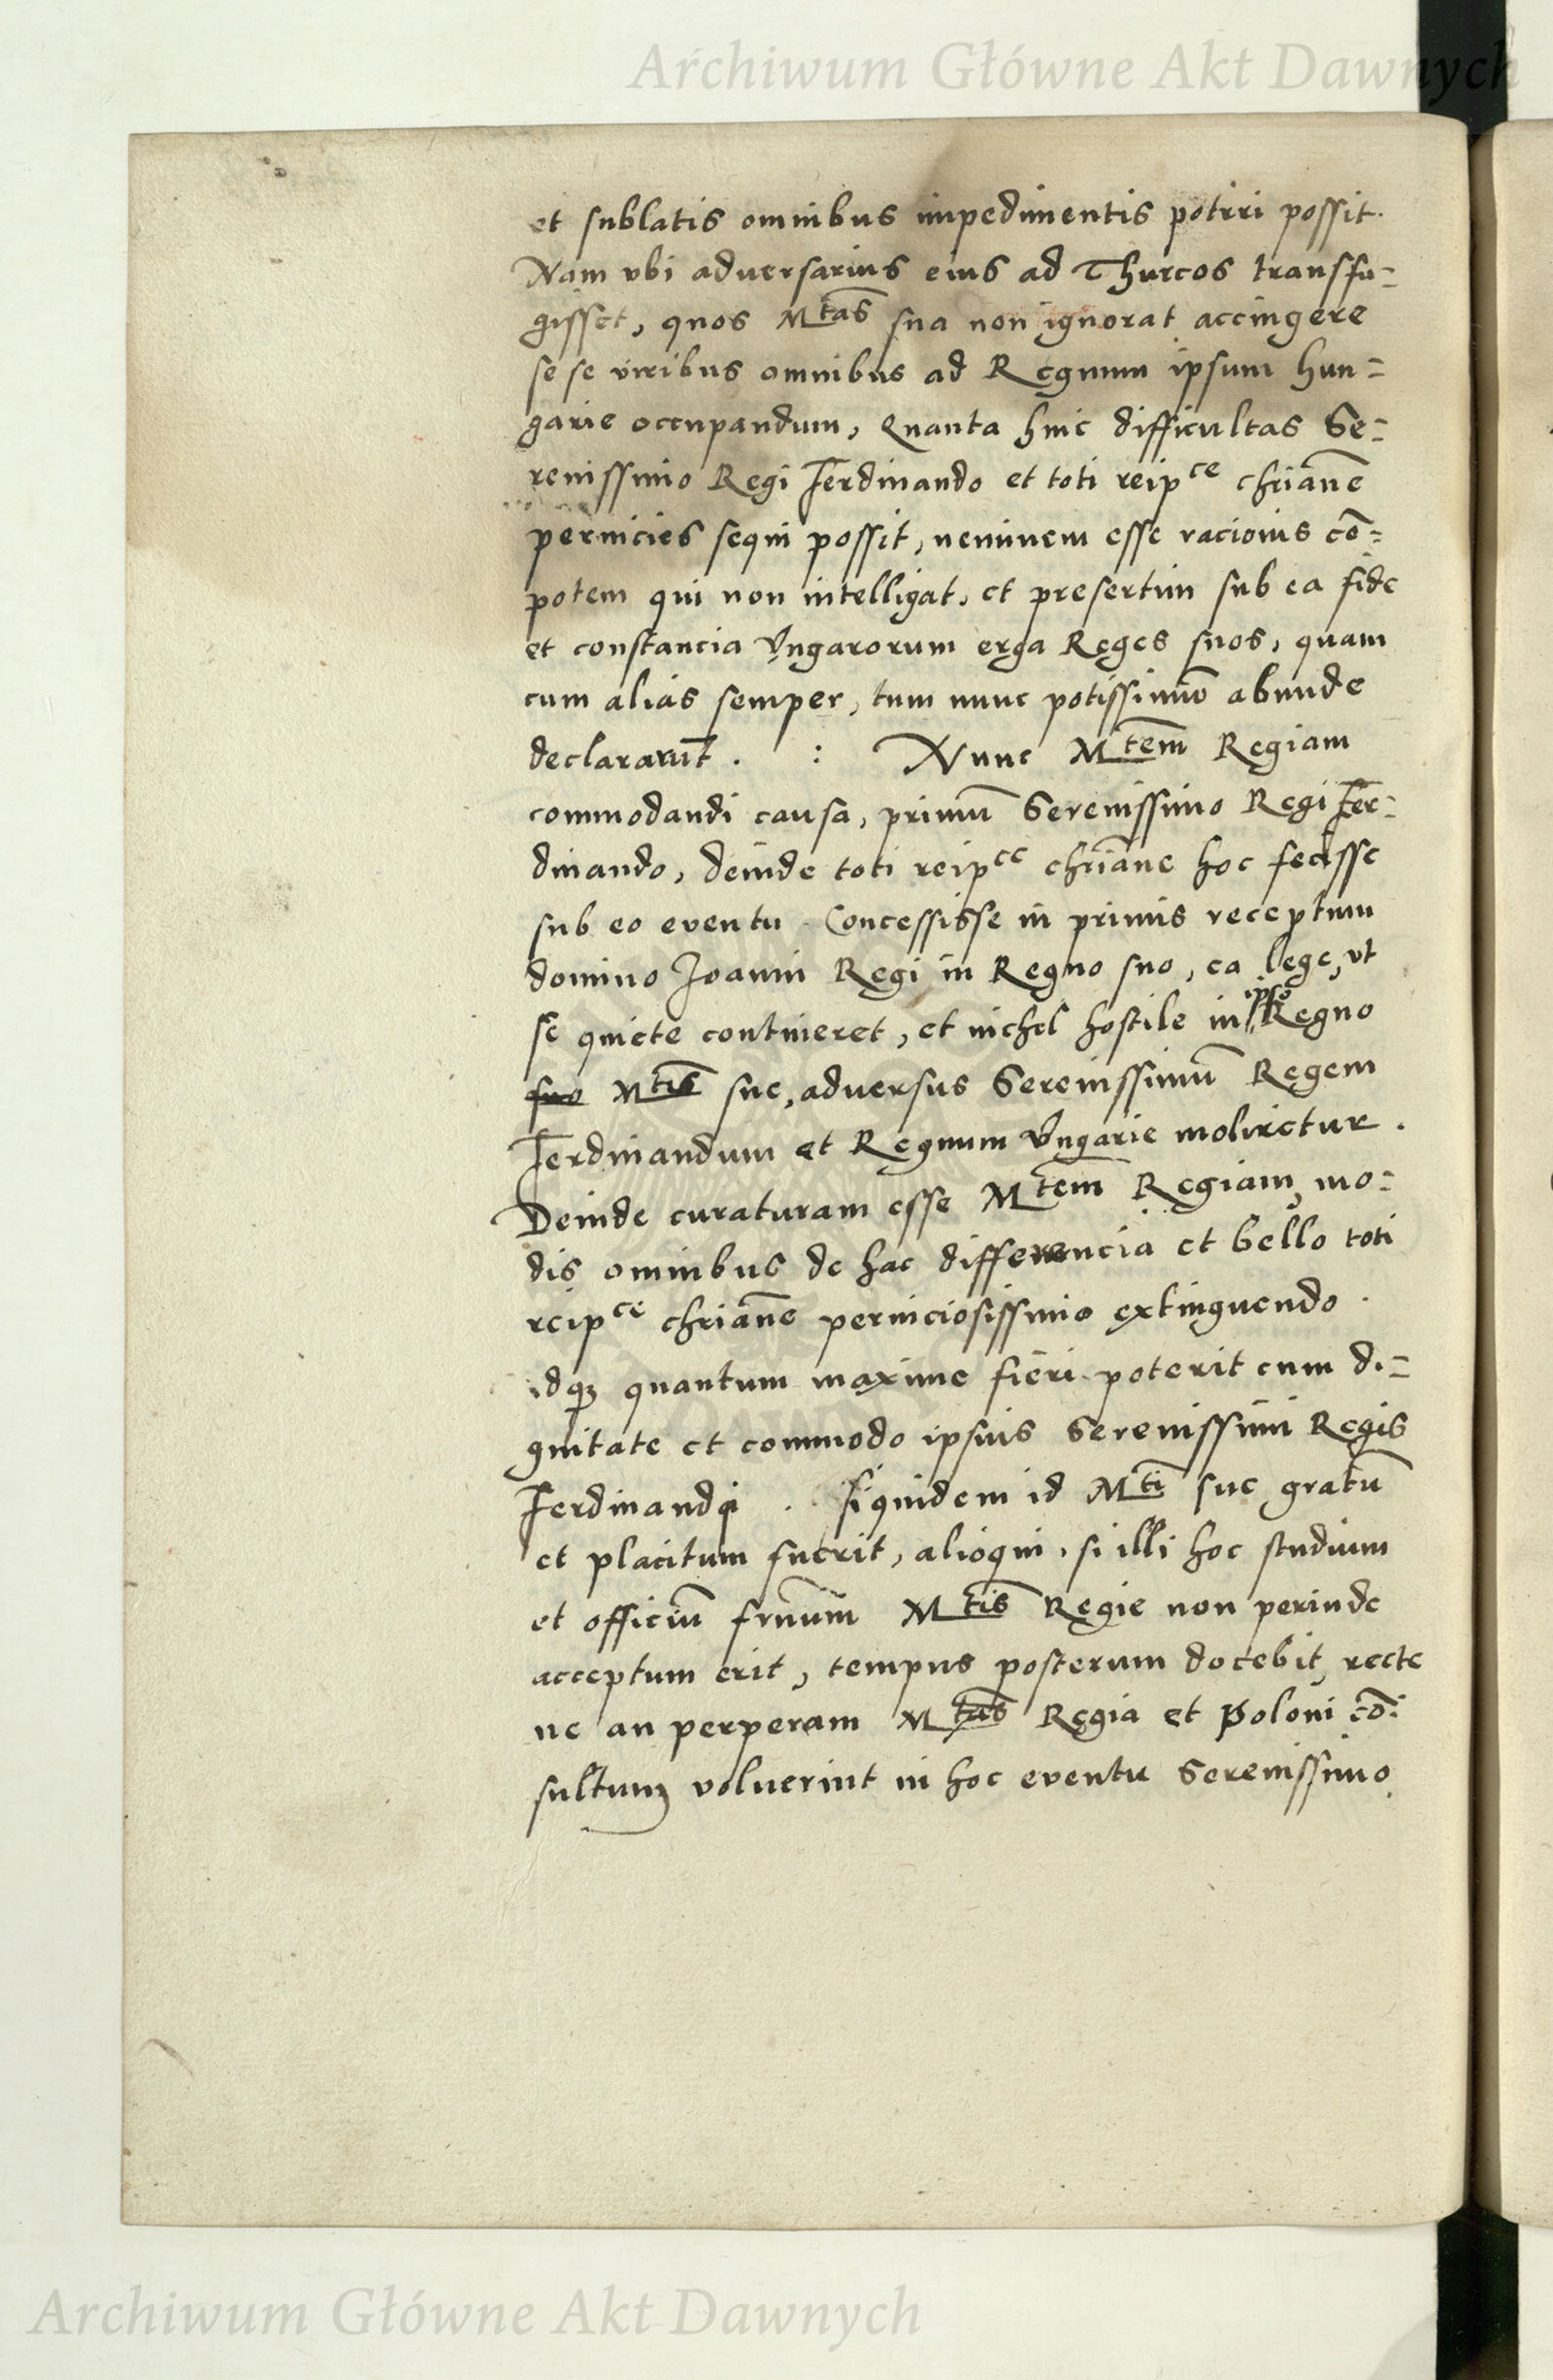 Archiwum Główne Akt Dawnych
et sublatis omnibus impedimentis potiri possit.
Nam vbi adversarius eius ad Thurcos transfu=
gisset, quos Mtas sua non ignorat accingere
se se viribus omnibus ad Regnum ipsum hun=
garie occupandum, Quanta hinc difficultas Se=
renissimo Regi Ferdinando et toti reipce chriane
pernicies sequi possit, neminem esse racionis co=
potem qui non intelligat, et presertim sub ea fide
et constancia Vngarorum erga Reges suos, quam
cum alias semper, tum nunc potissimu abunde
declararut . : Nunc Mtem Regiam
commodandi causa, primu Serenissimo Regi Fer=
dinando, deinde toti reipce chriane hoc fecisse
sub eo eventu Concessisse in primis receptum
domino Joanni Regi in Regno suo, ea lege, vt
se quiete contineret, et nichel hostile in ipso Regno
suo Mtis sue, adversus Serenissimu Regem
Ferdinandum et Regnum Vngarie moliretur .
Deinde curaturam esse Mtem Regiam, mo=
dis omnibus de hac differencia et bello toti
reipce chriane perniciosissimo extinguendo .
idqz quantum maxime fieri poterit cum di=
gnitate et commodo ipsius Serenissimi Regis
Ferdinandi . siquidem id Mti sue gratu
et placitum fuerit, alioqui, si illi hoc studium
et officiu frnum Mtis Regie non perinde
acceptum erit, tempus posterum docebit, recte
ne an perperam Mtas Regia et Poloni co=
sultum voluerint in hoc eventu Serenissimo
Archiwum Główne Akt Dawnych